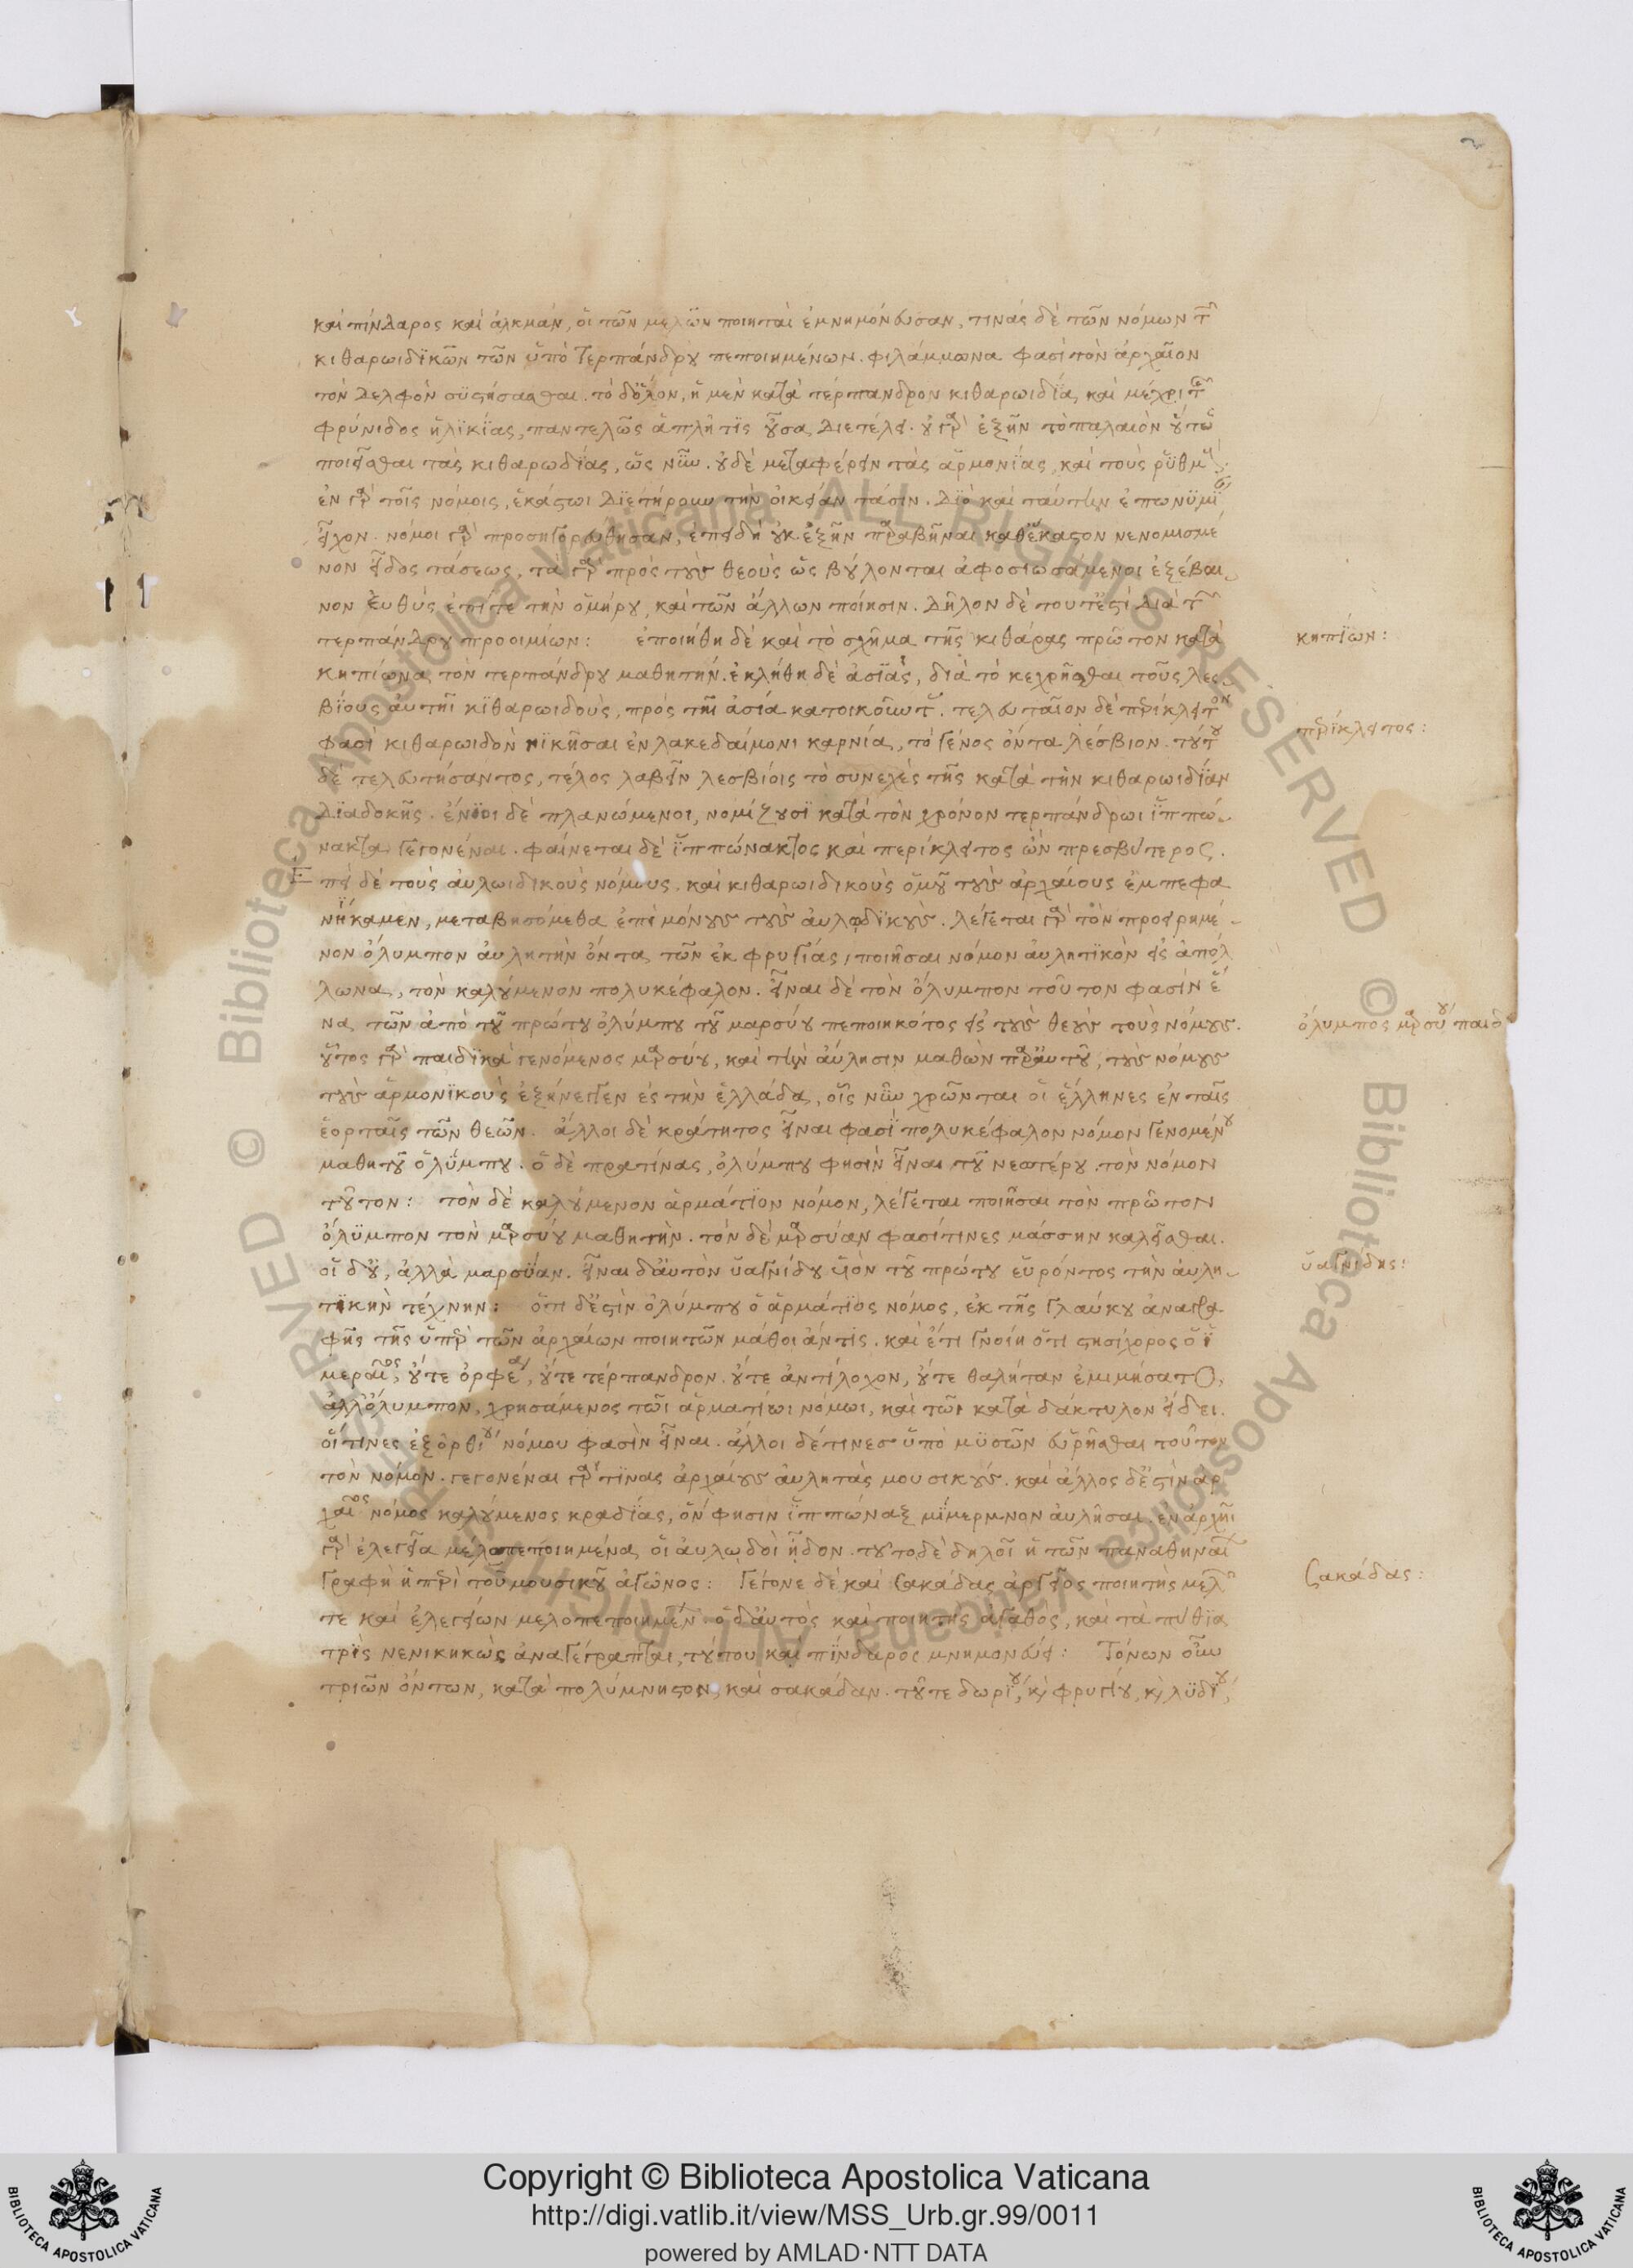 καὶ πίνδαρος καὶ ἀλκμάν, οἱ τῶν μελῶν ποιηταὶ ἐμνημόνευσαν. τινὰς δὲ τῶν νόμων τῶν
κιθαρωιδϊκῶν τῶν ὑπὸ τερπάνδρου πεποιημένων. φιλάμμωνα φασὶ τὸν ἀρχαῖον
τὸν δελφὸν συστήσασθαι. τὸ δ᾽ὅλον, ἡ μὲν κατὰ τέρπανδρον κιθαρωιδία, καὶ μέχρι τῆς
φρύνιδος ἡλϊκίας, παντελῶς ἁπλῆ τὶς οὖσα διετέλει. οὐ γὰρ ἐξῆν τὸ παλαιὸν οὕτω
ποιεῖσθαι τὰς κιθαρωδίας, ὡς νῦν. οὐδὲ μεταφέρειν τὰς ἁρμονίας καὶ τοὺς ῥυθμούς.
ἐν γὰρ τοῖς νόμοις, ἑκάστωι διετήρουν τὴν οἰκείαν τάσιν. διὸ καὶ ταύτην ἐπωνυμίαν
εἶχον. νόμοι γὰρ προσηγορεύθησαν, ἐπειδὴ οὐκ ἐξῆν παραβῆναι καθ᾽ἕκαστον νενομισμέ
νον εἶδος τάσεως. τὰ γὰρ πρὸς τοὺς θεοὺς ὡς βούλονται ἀφοσιωσάμενοι ἐξέβαι
νον εὐθὺς ἐπί τε τὴν ὁμήρου, καὶ τῶν ἄλλων ποίησιν. δῆλον δὲ τοῦτ᾽ἐστὶ διὰ τῶν
τερπάνδρου προοιμίων: ἐποιήθη δὲ καὶ τὸ σχῆμα τῆς κιθάρας πρῶτον κατὰ
κηπίωνα τὸν τερπάνδρου μαθητήν. ἐκλήθη δὲ ἀσϊὰς, διὰ τὸ κεχρῆσθαι τοὺς λεσ
βίους αὐτῆι κϊθαρωιδοὺς, πρὸς τῆι ἀσία κατοικοῦντας. τελευταῖον δὲ περίκλειτον
φασὶ κιθαρωιδὸν νϊκῆσαι ἐν λακεδαίμονι καρνία, τὸ γένος ὄντα λέσβιον. τούτου
δὲ τελευτήσαντος, τέλος λαβεῖν λεσβίοις τὸ συνεχὲς τῆς κατὰ τὴν κιθαρωιδίαν
διαδοχῆς. ἔνϊοι δὲ πλανώμενοι, νομίζουσϊ κατὰ τὸν χρόνον τερπάνδρωι ἱππώ
νακτα γεγονέναι. φαίνεται δὲ ἱππώνακτος καὶ περίκλειτος ὢν πρεσβύτερος.
Ἐπεὶ δὲ τοὺς αὐλωιδικοὺς νόμους. καὶ κιθαρωιδικοὺς ὁμοῦ τοὺς ἀρχαίους ἐμπεφα
νίκαμεν, μεταβησόμεθα ἐπὶ μόνους τοὺς αὐλῳδϊκούς. λέγεται γὰρ τὸν προειρημέ
νον ὄλυμπον αὐλητὴν ὄντα τῶν ἐκ φρυγίας, ποιῆσαι νόμον αὐλητϊκὸν εἰς ἀπόλ
λωνα, τὸν καλούμενον πολυκέφαλον. εἶναι δὲ τὸν ὄλυμπον τοῦτον φασὶν ἕ
να τῶν ἀπὸ τοῦ πρώτου ὀλύμπου τοῦ μαρσύου πεποιηκότος εἰς τοὺς θεοὺς τοὺς νόμους.
οὗτος γὰρ παιδϊκὰ γενόμενος μαρσύου, καὶ τὴν αὔλησιν μαθὼν παρ᾽αὐτοῦ, τοὺς νόμους
τοὺς ἁρμονϊκοὺς ἐξήνεγκεν ἐς τὴν ἑλλάδα, οἷς νῦν χρῶνται οἱ ἕλληνες ἐν ταῖς
ἑορταῖς τῶν θεῶν. ἄλλοι δὲ κράτητος εἶναι φασὶ πολυκέφαλον νόμον γενομένου
μαθητοῦ ὀλύμπου. ὁ δὲ πρατίνας, ὀλύμπου φησὶν εἶναι τοῦ νεωτέρου τὸν νόμον
τοῦτον: τὸν δὲ καλούμενον ἁρμάτϊον νόμον, λέγεται ποιῆσαι τὸν πρῶτον
ὄλυμπον τὸν μαρσύου μαθητὴν. τὸν δὲ μαρσύαν φασί τινες μάσσην καλεῖσθαι.
οἱ δ᾽οὔ, ἀλλὰ μαρσύαν. εἶναι δ᾽αὐτὸν ὑάγνιδου ϋἱὸν τοῦ πρώτου εὑρόντος τὴν αὐλη
τϊκὴν τέχνην: ὅτι δ᾽ἐστὶν ὀλύμπου ὁ ἁρμάτϊος νόμος, ἐκ τῆς γλαύκου ἀναγρα
φῆς τῆς ὑπὲρ τῶν ἀρχαίων ποιητῶν μάθοι ἄν τϊς. καὶ ἔτι γνοίη ὅτι στησίχορος ὁ ἱ
μεραῖος, οὔτε ὀρφέα, οὔτε τέρπανδρον. οὔτε ἀντίλοχον, οὔτε θαλήταν ἐμιμήσατο,
ἀλλ᾽ὄλυμπον, χρησάμενος τῶι ἁρματίωι νόμωι, καὶ τῶι κατὰ δάκτυλον εἴδει.
οἵτινες ἐξ ὀρθίου νόμου φασὶν εἶναι. ἄλλοι δέ τινες ὑπὸ μϋσῶν εὑρῆσθαι τοῦτον
τὸν νόμον. γεγονέναι γάρ τϊνας ἀρχαίους αὐλητὰς μουσικούς. καὶ ἄλλος δ᾽ἐστὶν ἀρ
χαῖος νόμος καλούμενος κραδίας, ὅν φησιν ἱππώναξ μίμερμνον αὐλῆσαι. ἐν ἀρχῆι
γὰρ ἐλεγεῖα μελοπεποιημένα οἱ αὐλῳδοὶ ᾖδον. τοῦτο δὲ δηλοῖ ἡ τῶν παναθηναίων
γραφὴ ἡ περὶ τοῦ μουσικοῦ ἀγῶνος: γέγονε δὲ καὶ σακάδας ἀργεῖος ποιητὴς μελῶν
τε καὶ ἐλεγείων μελοπεποιημένων. ὁ δ᾽αὐτὸς καὶ ποιητὴς ἀγαθὸς, καὶ τὰ πύθϊα
τρὶς νενικηκὼς ἀναγέγραπται, τούτου καὶ πίνδαρος μνημονεύει: Τόνων οὖν
τριῶν ὄντων, κατὰ πολύμνηστον, καὶ σακάδαν. τοῦ τε δωρίου, κὶ φρυγίου, κὶ λϋδίου,
κηπίων:
περίκλειτος:
ὄλυμπος μαρσύου παιδ
ὕαγνίδης:
Σακάδας:
Copyright © Biblioteca Apostolica Vaticana
http://digi.vatlib.it/view/MSS_Urb.gr.99/0011
powered by AMLAD·NTT DATA
BIBLIOTECA APOSTOLICA VATICANA
BIBLIOTECA APOSTOLICA VATICANA
© Biblioteca Apostolica Vaticana ALL RIGHTS RESERVED © Biblioteca Apostolica Vaticana ALL RIGHTS RESERVED